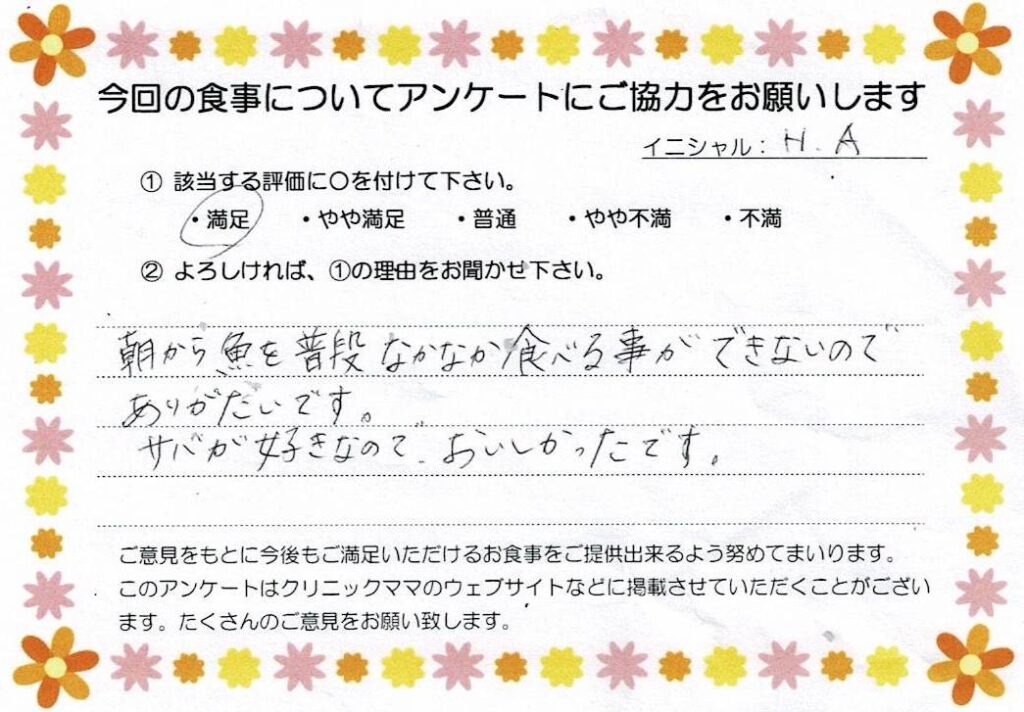 今回の食事についてアンケートにご協力をお願いします
イニシャル：H.A
① 該当する評価に〇を付けて下さい。
・満足 ・やや満足 ・普通 ・やや不満 ・不満
② よろしければ、①の理由をお聞かせ下さい。
朝から魚を普段なかなか食べる事ができないので
ありがたいです。
サバが好きなので、おいしかったです。
ご意見をもとに今後もご満足いただけるお食事をご提供出来るよう努めてまいります。
このアンケートはクリニックママのウェブサイトなどに掲載させていただくことがござい
ます。たくさんのご意見をお願い致します。